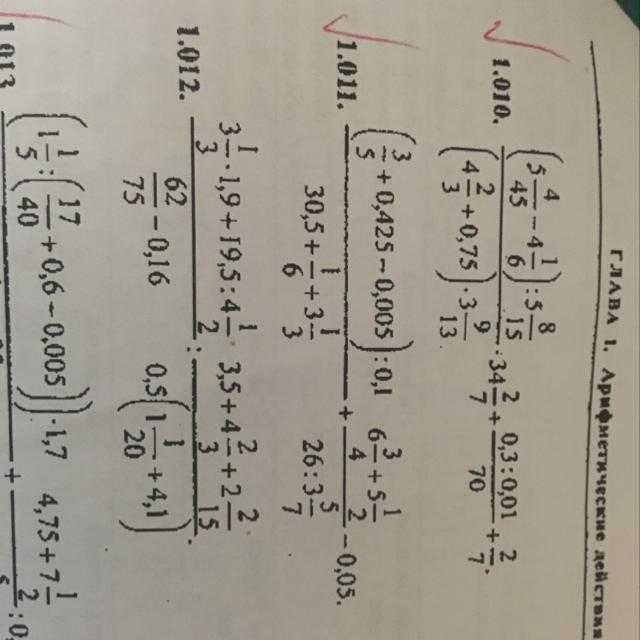 ГЛАВА 1. Арифметические действия
1.010. \frac{\left(5\frac{4}{45} - 4\frac{1}{6}\right) : 5\frac{8}{15}}{\left(4\frac{2}{3} + 0,75\right) \cdot 3\frac{9}{13}} \cdot 34\frac{2}{7} + \frac{0,3 : 0,01}{70} + \frac{2}{7}.
1.011. \frac{\left(\frac{3}{5} + 0,425 - 0,005\right) : 0,1}{30,5 + \frac{1}{6} + 3\frac{1}{3}} + \frac{6\frac{3}{4} + 5\frac{1}{2}}{26 : 3\frac{5}{7}} - 0,05.
1.012. \frac{3\frac{1}{3} \cdot 1,9 + 19,5 : 4\frac{1}{2}}{\frac{62}{75} - 0,16} : \frac{3,5 + 4\frac{2}{3} + 2\frac{2}{15}}{0,5\left(1\frac{1}{20} + 4,1\right)}.
1.013. \left(1\frac{1}{5} : \left(\frac{17}{40} + 0,6 - 0,005\right)\right) \cdot 1,7 + 4,75 + 7\frac{1}{2} : 0